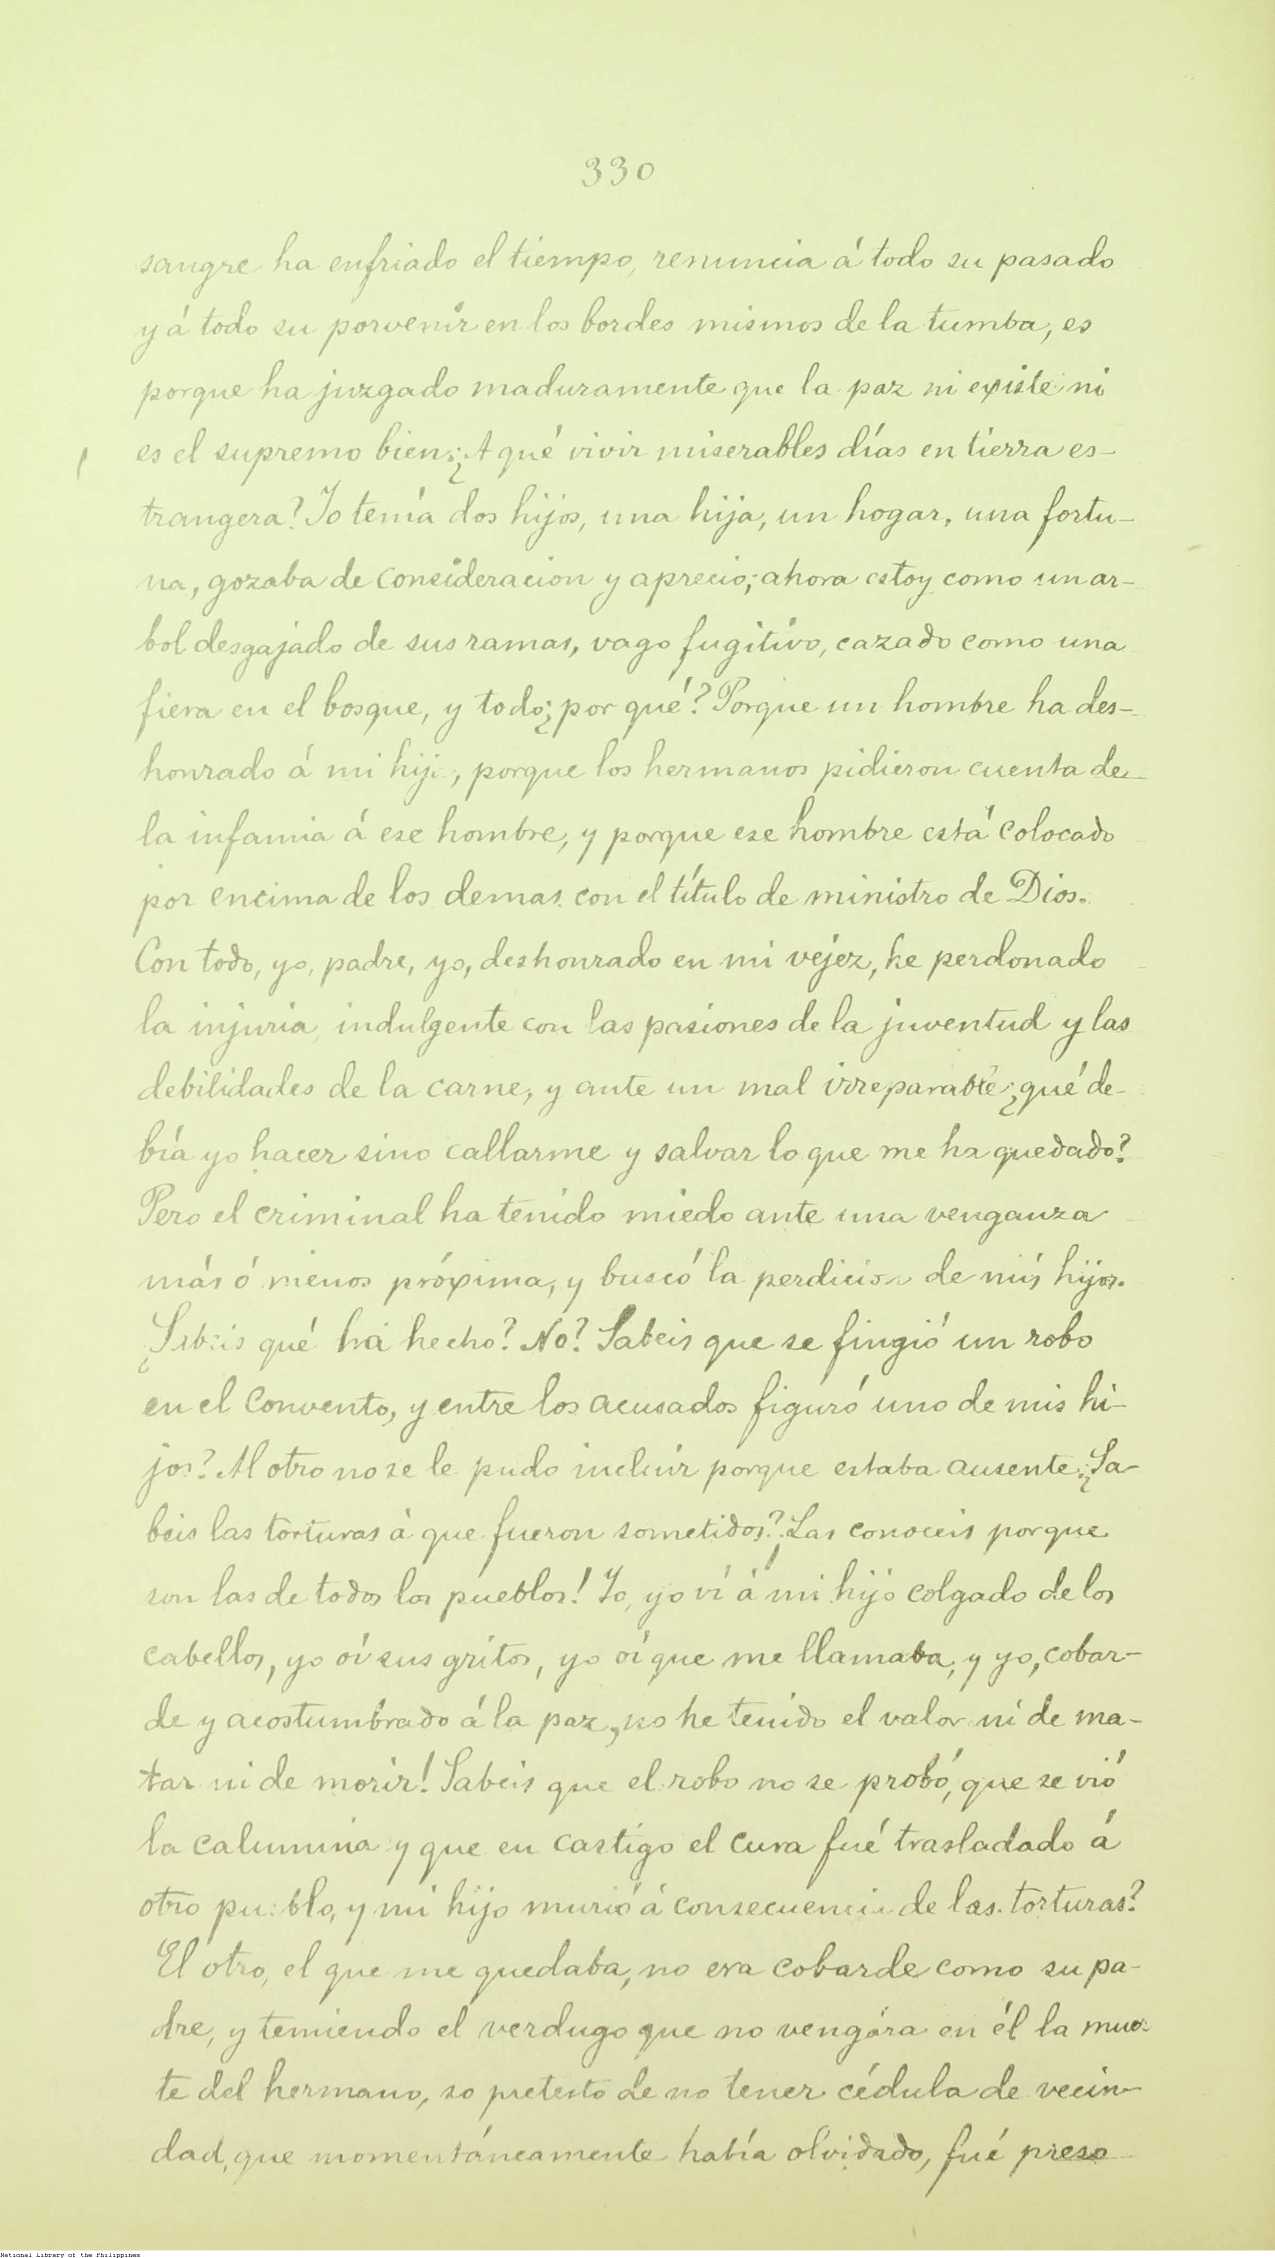 330
sangre ha enfriado el tiempo, renuncia á todo su pasado
y á todo su porvenir en los bordes mismos de la tumba, es
porque ha juzgado maduramente que la paz ni existe ni
es el supremo bien; ¿A qué vivir miserables días en tierra es-
trangera? Yo tenía dos hijos, una hija, un hogar, una fortu-
na, gozaba de consideracion y aprecio; ahora estoy como un ar-
bol desgajado de sus ramas, vago fugitivo, cazado como una
fiera en el bosque, y todo ¿por qué? Porque un hombre ha des-
honrado á mi hija, porque los hermanos pidieron cuenta de
la infamia á ese hombre, y porque ese hombre está colocado
por encima de los demas con el título de ministro de Dios.
Con todo, yo, padre, yo, deshonrado en mi vejez, he perdonado
la injuria, indulgente con las pasiones de la juventud y las
debilidades de la carne, y ante un mal irreparable ¿qué de-
bía yo hacer sino callarme y salvar lo que me ha quedado?
Pero el criminal ha tenido miedo ante una venganza
más ó menos próxima, y buscó la perdicion de mis hijos.
¿Sabeis qué há hecho? No? Sabeis que se fingió un robo
en el convento, y entre los acusados figuró uno de mis hi-
jos? Al otro no se le pudo incluir porque estaba ausente. ¿Sa-
beis las torturas á que fueron sometidos? ¡Las conoceis porque
son las de todos los pueblos! Yo, yo ví á mi hijo colgado de los
cabellos, yo oí sus gritos, yo oí que me llamaba, y yo, cobar-
de y acostumbrado á la paz, no he tenido el valor ni de ma-
tar ni de morir! Sabeis que el robo no se probó, que se vió
la calumnia y que en castigo el cura fué trasladado á
otro pueblo, y mi hijo murió á consecuencia de las torturas?
El otro, el que me quedaba, no era cobarde como su pa-
dre, y temiendo el verdugo que no vengára en él la muer-
te del hermano, so pretesto de no tener cédula de vecin-
dad, que momentáneamente había olvidado, fué preso
National Library of the Philippines